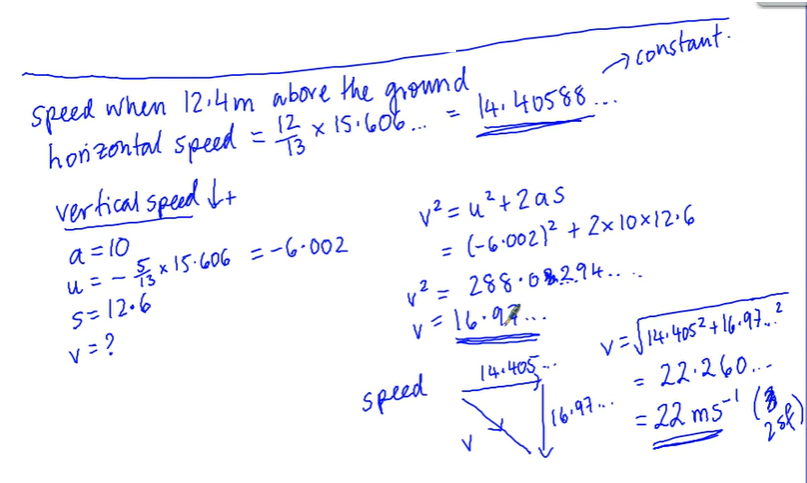 speed when 12.4m above the ground
horizontal speed = 12/13 × 15.606... = 14.40588... → constant.
vertical speed ↓+
a = 10
u = - 5/13 × 15.606 = -6.002
s = 12.6
v = ?
v² = u² + 2as
= (-6.002)² + 2×10×12.6
v² = 288.0294....
v = 16.97...
speed
14.405...
16.97...
v
v = √14.405² + 16.97...²
= 22.260...
= 22 ms⁻¹ (2sf)